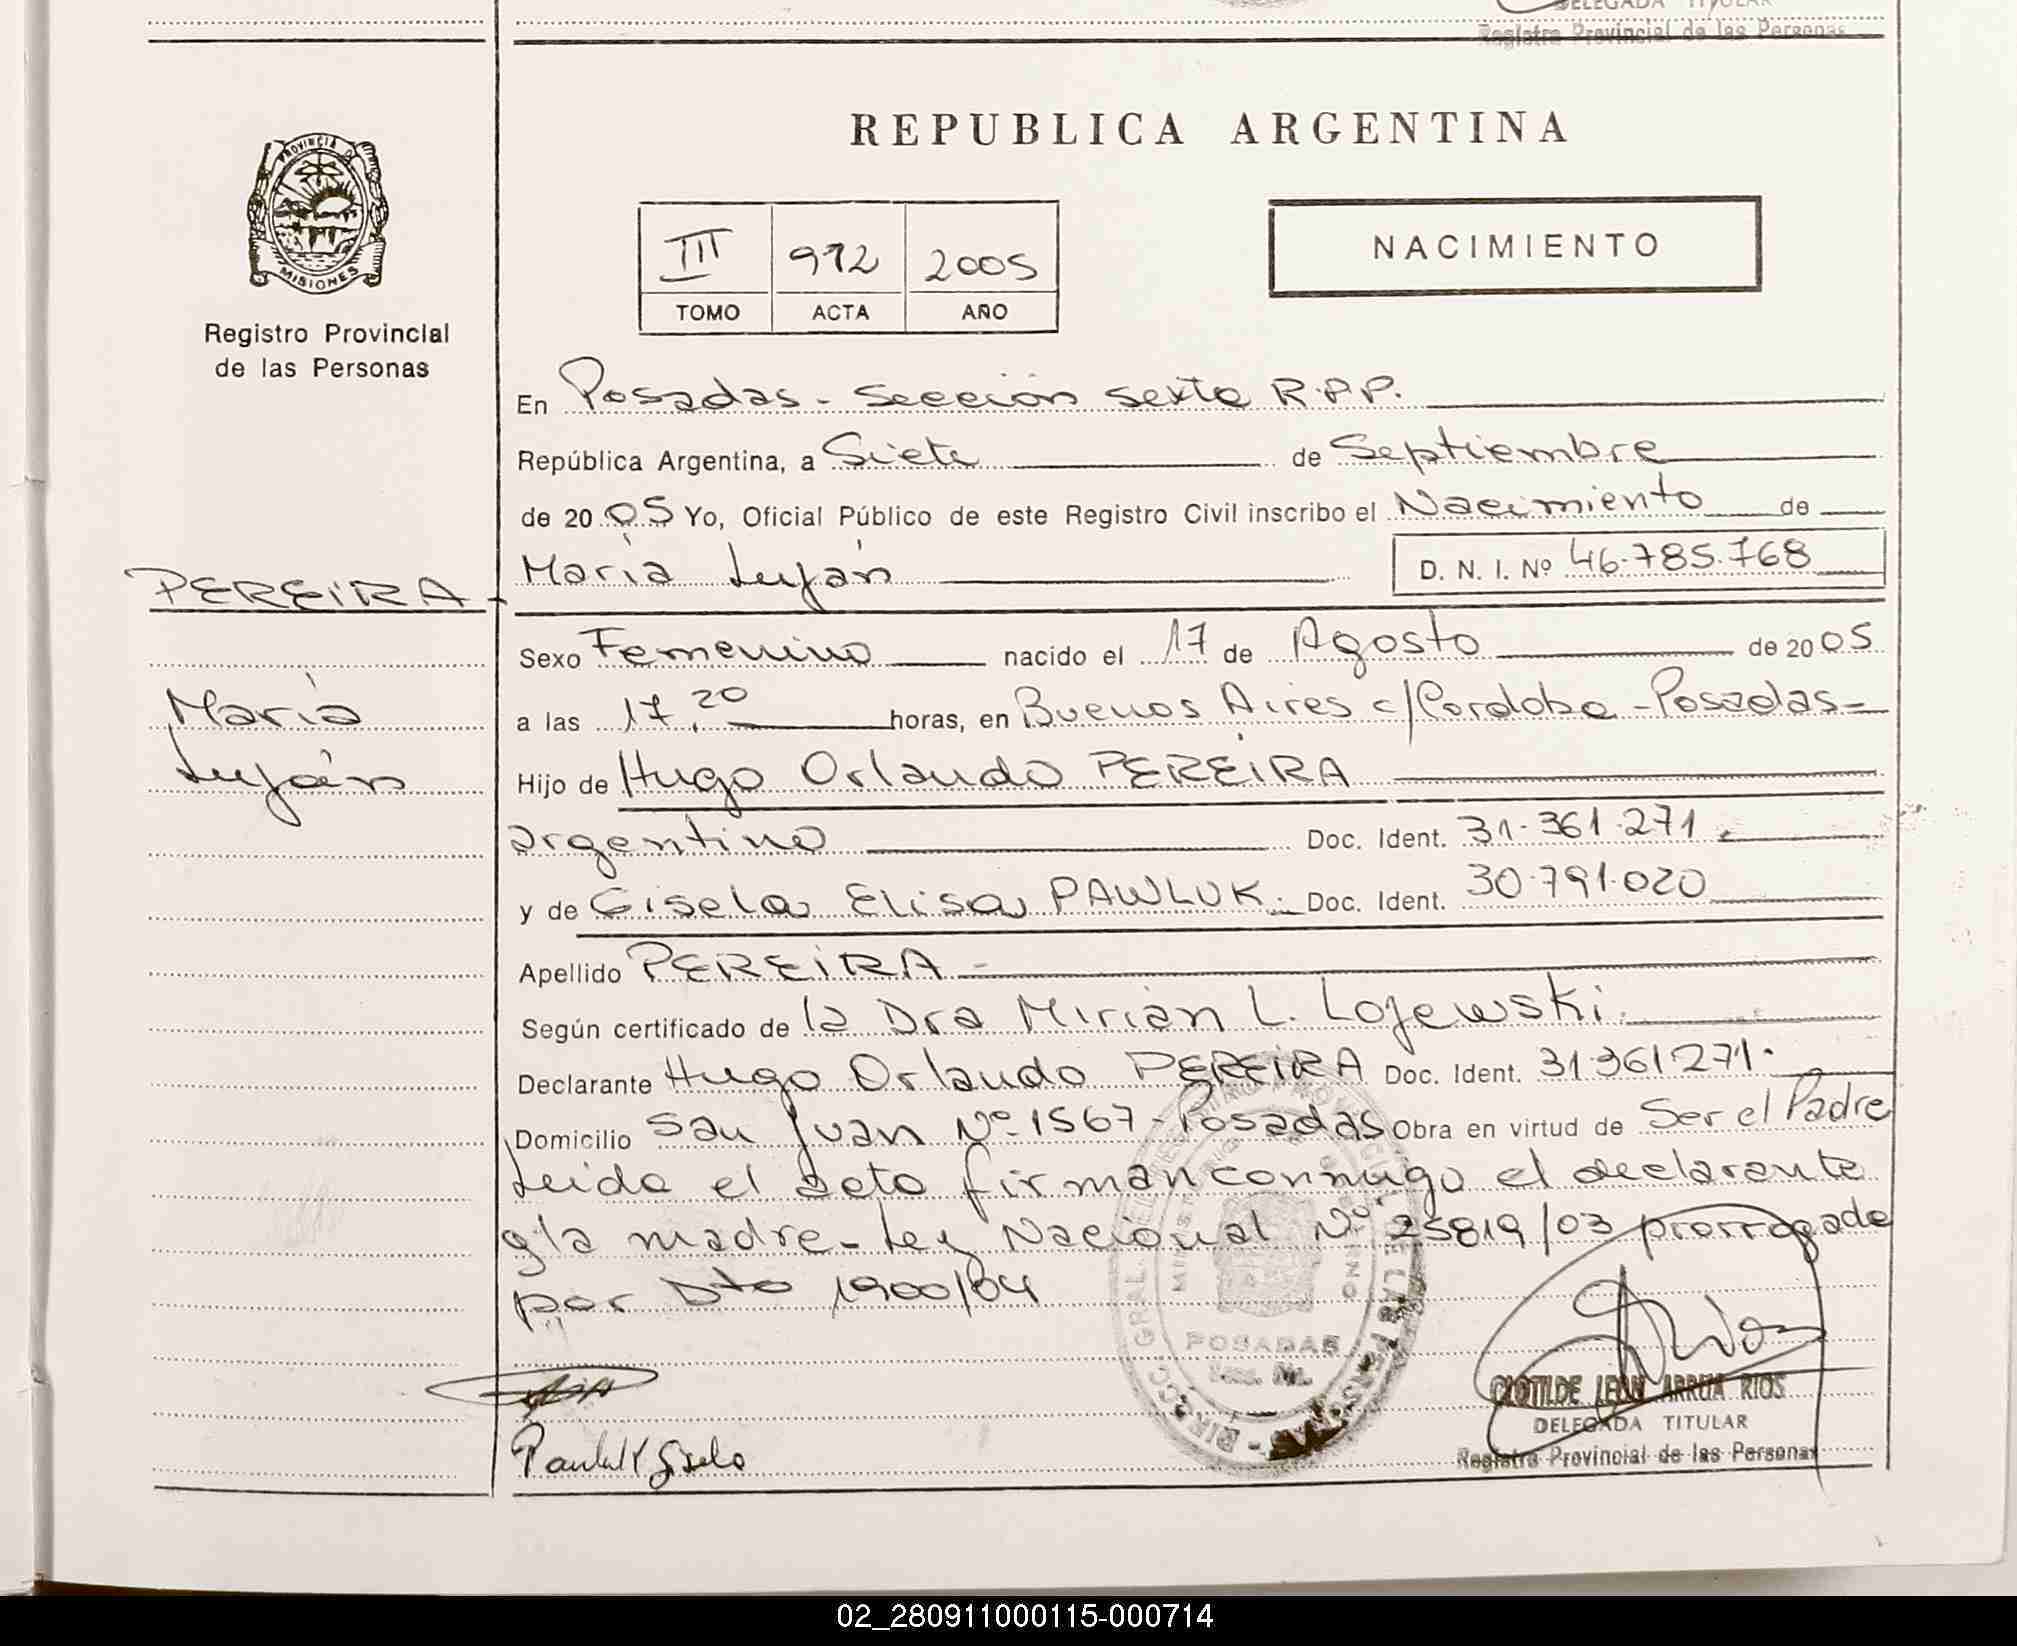 DELEGADA TITULAR
Registro Provincial de las Personas
PROVINCIA D
MISIONES
Registro Provincial
de las Personas
REPUBLICA ARGENTINA
III 972 2005
TOMO ACTA AÑO
NACIMIENTO
En Posadas - Sección sexta R.P.P.
República Argentina, a Siete de Septiembre
de 20 05 Yo, Oficial Público de este Registro Civil inscribo el Nacimiento de
María Luján D. N. I. Nº 46.785.768
PEREIRA -
María
Luján
Sexo Femenino nacido el 17 de Agosto de 20 05
a las 17,20 horas, en Buenos Aires c/Cordoba - Posadas -
Hijo de Hugo Orlando PEREIRA
argentino Doc. Ident. 31.361.271.
y de Gisela Elisa PAWLUK. Doc. Ident. 30.791.020
Apellido PEREIRA -
Según certificado de la Dra Mirian L. Lojewski.
Declarante Hugo Orlando PEREIRA Doc. Ident. 31.361.271.
Domicilio San Juan Nº 1567 - Posadas Obra en virtud de Ser el Padre
Leida el acta firman conmigo el declarante
y la madre - Ley Nacional Nº 25819/03 prorrogada
por Dto 1900/04
POSADAS
Pawluk Gisela
CLOTILDE LEON ARRUA RIOS
DELEGADA TITULAR
Registro Provincial de las Personas
02_280911000115-000714